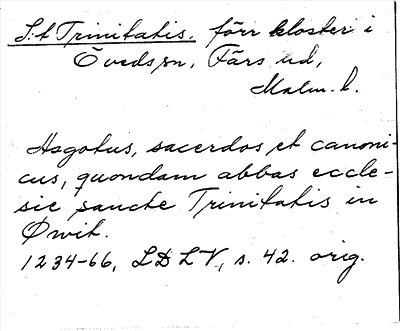 S:t Trinitatis, förr kloster i
Övedssn, Färs hd,
Malm. l.
Asgotus, sacerdos et canoni-
cus, quondam abbas eccle-
sie sancte Trinitatis in
Øwit.
1234-66, LDLV, s. 42. orig.